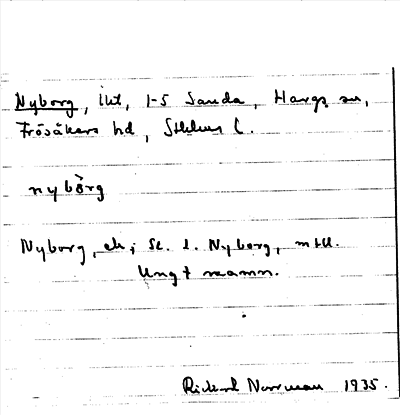 Nyborg, lht, 1-5 Sanda, Hargs sn,
Frösåkers hd, Sthlms l.
nybårg
Nyborg, Se. l. Nyborg,
Ungt namn.
Rickard Norrman 1935.